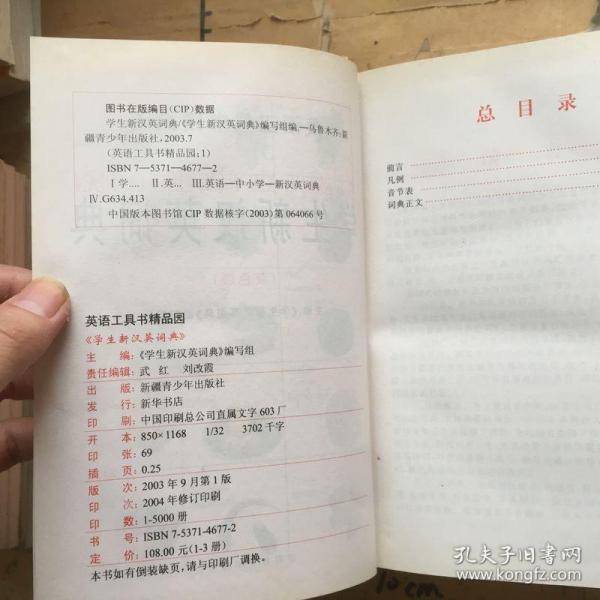 图书在版编目(CIP)数据
学生新汉英词典/《学生新汉英词典》编写组编.—乌鲁木齐:新
疆青少年出版社,2003.7
(英语工具书精品园;1)
ISBN 7—5371—4677—2
Ⅰ学.... Ⅱ.英... Ⅲ.英语—中小学—新汉英词典
Ⅳ.G634.413
中国版本图书馆 CIP 数据核字(2003)第 064066 号
英语工具书精品园
《学生新汉英词典》
主 编:《学生新汉英词典》编写组
责任编辑:武 红 刘改霞
出 版:新疆青少年出版社
发 行:新华书店
印 刷:中国印刷总公司直属文字 603 厂
开 本:850×1168 1/32 3702 千字
印 张:69
插 页:0.25
版 次:2003 年 9 月第 1 版
印 次:2004 年修订印刷
印 数:1-5000 册
书 号:ISBN 7-5371-4677-2
定 价:108.00 元(1-3 册)
本书如有倒装缺页,请与印刷厂调换。
总 目 录
前言
凡例
音节表
词典正文
10cm
孔夫子旧书网
www.kongfz.com